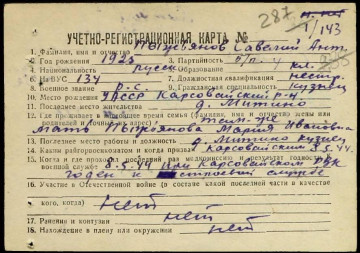 287
1/143
УЧЕТНО-РЕГИСТРАЦИОННАЯ КАРТА №
1. Фамилия, имя и отчество Пыжьянов Савелий Ант.
2. Год рождения 1925 3. Партийность б/п
4. Национальность русск. Образование 4 кл.
6. № ВУС 134 7. Должностная квалификация
8. Военное звание р-с. 9. Гражданская специальность кузнец
10. Место рождения УАССР Карсовайский р-н
11. Последнее место жительства д. Митино
12. Где проживает в настоящее время семья (фамилия, имя и отчество жены или
родителей и точный их адрес) там-же
Мать Пыжьянова Мария Ивановна
13. Последнее место работы и должность д. Митино кузнец
14. Каким райвоенкоматом и когда призван Карсовайским 8.5.44.
15. Когда и где проходил последний раз медицинскую комиссию и результат годности к
военной службе 8.5.44 при Карсовайском РВК
годен к строевой службе
16. Участие в Отечественной войне (в составе какой последней части и в качестве
кого, когда) нет
17. Ранение и контузии нет
18. Нахождение в плену или окружении нет